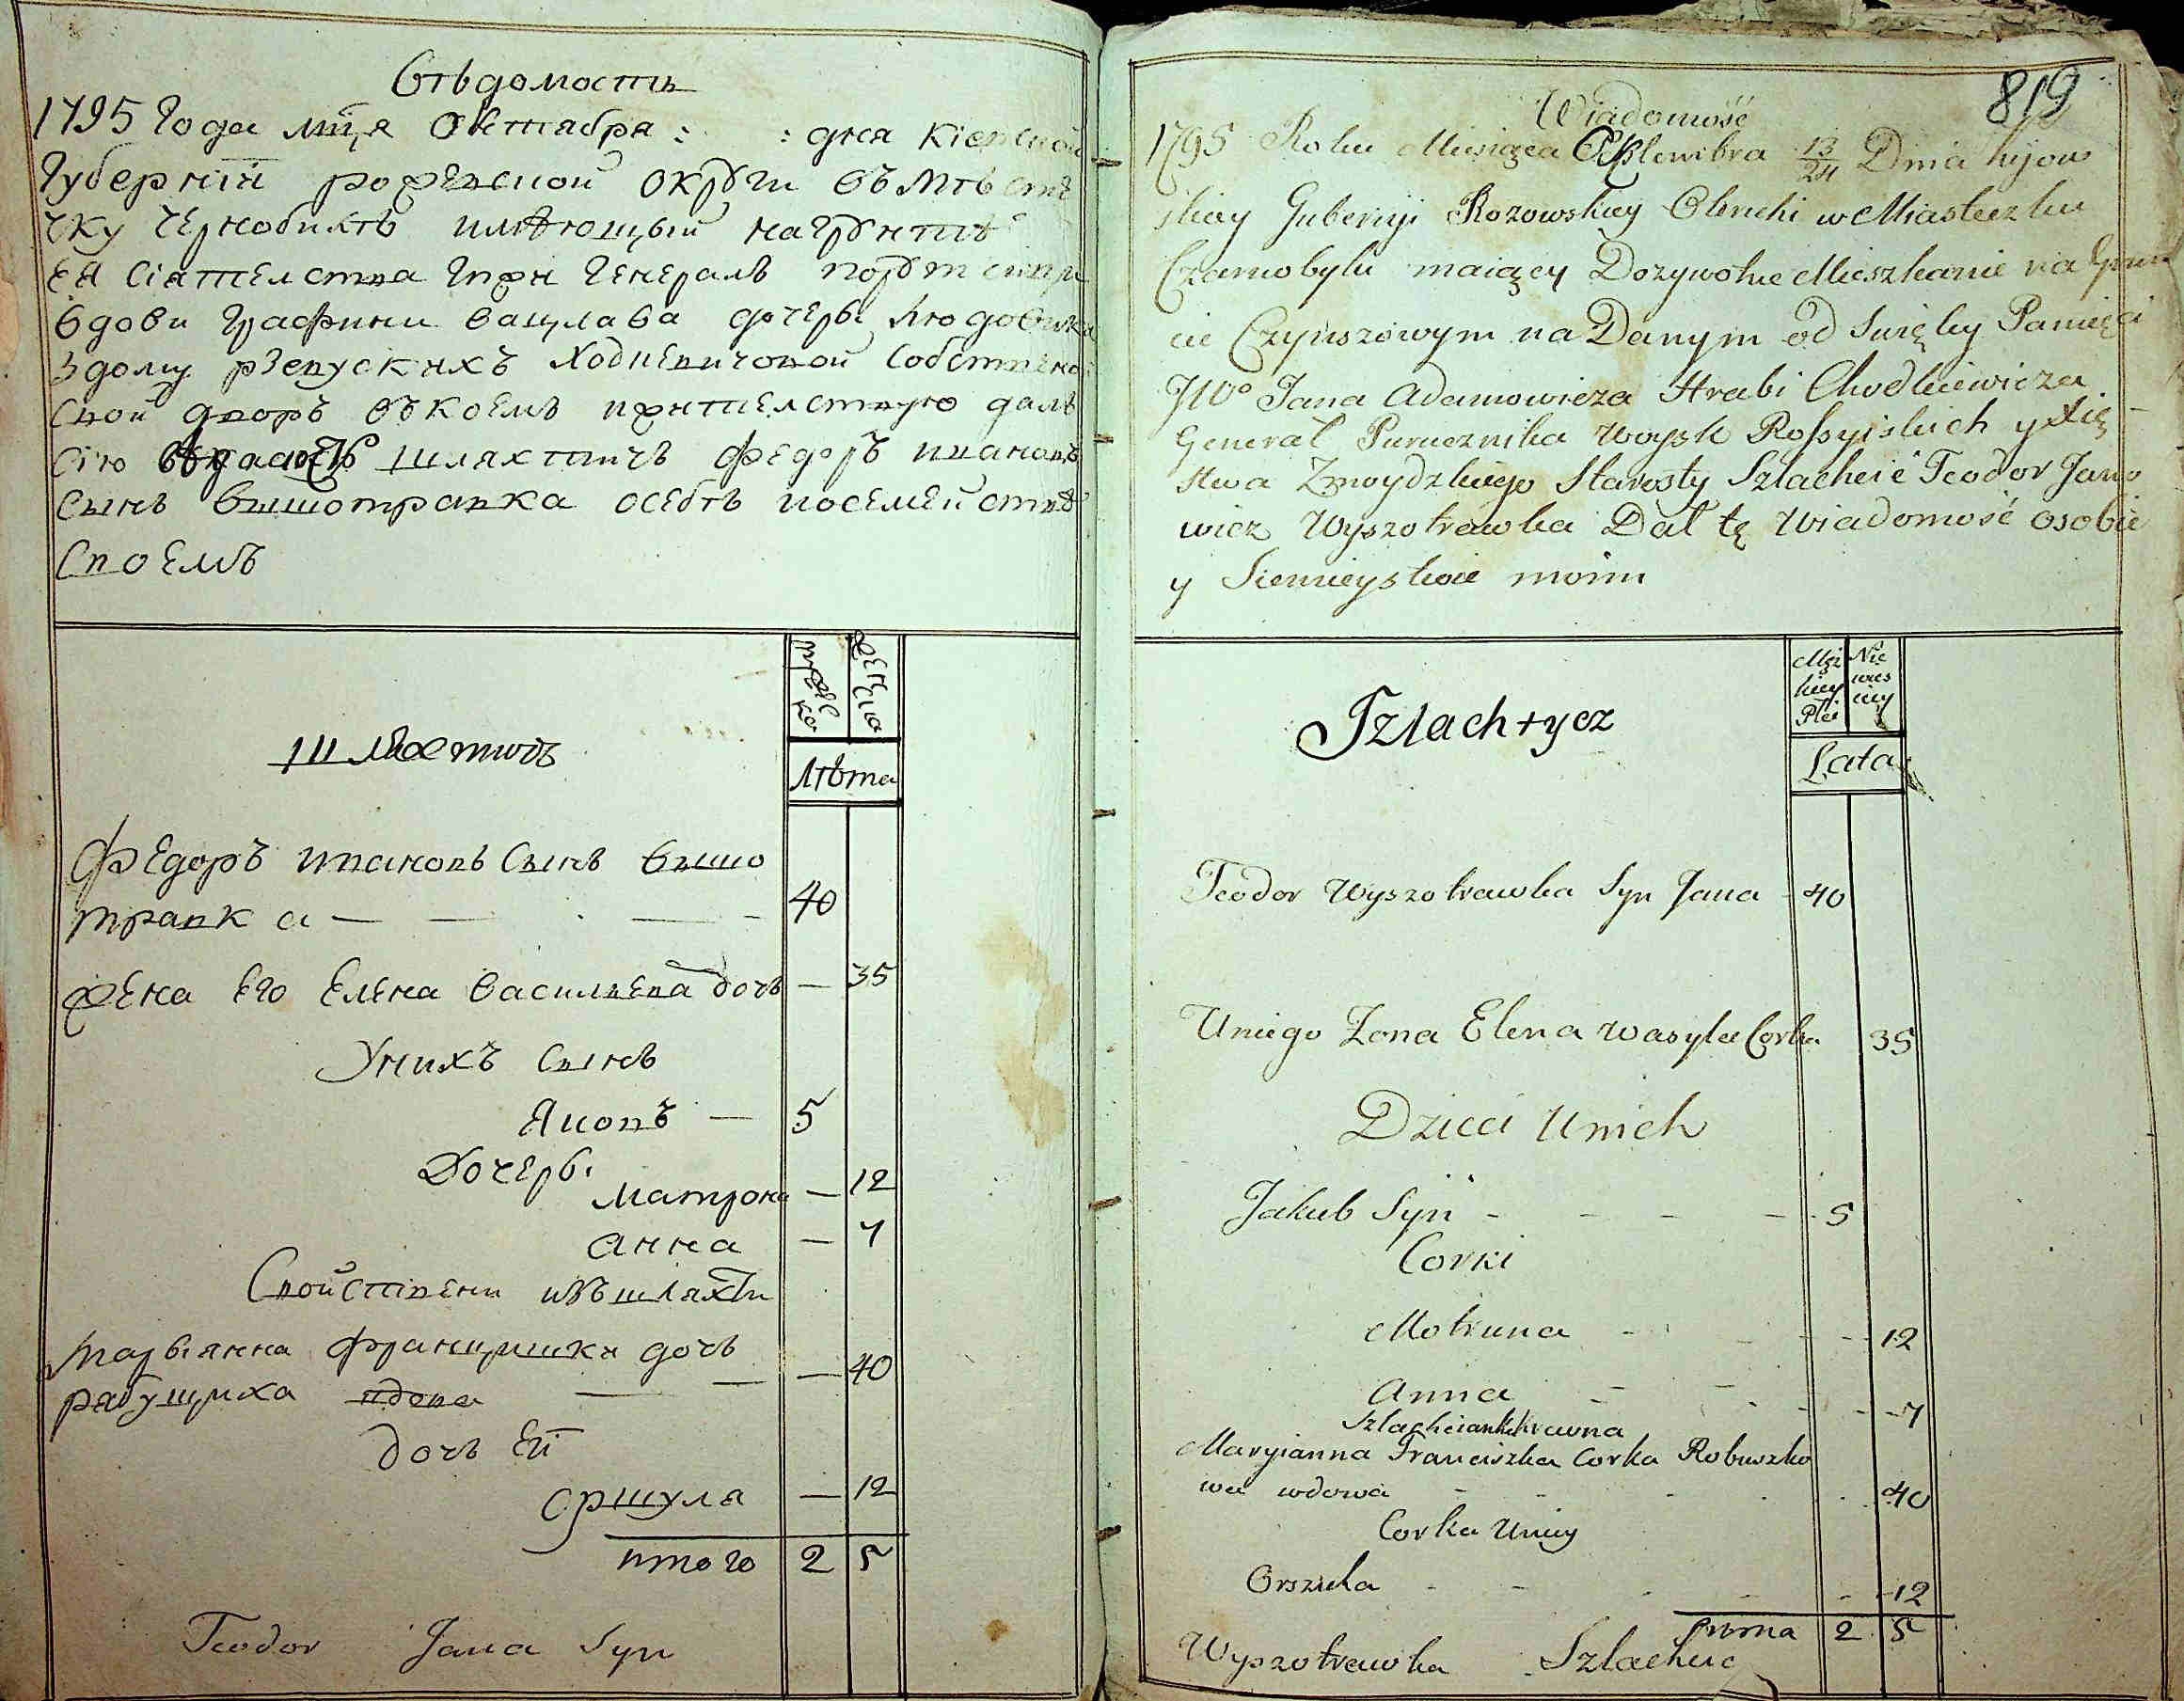 Вѣдомость
1795 Года мца Октября : : дня Кіевской
Губерніи рожевской округи въ мѣсте
чку чернобилѣ имѣющый на Грунтѣ
ея сіятелства Грфи Генералъ порут
вдови Графини вацлава дочеры Людовики
здому рзевускихъ Ходкевичовой собственой
свой дворъ въ коемъ жителствую далъ
сію шляхтичъ Федоръ ивановъ
сынъ вышотравка осебѣ и осемействѣ
своемъ
мужеска
женска
шляхтичь
лѣта
Федоръ ивановъ сынъ вышо
травка — — — 40
жена его Елена васильева дочь — 35
Унихъ сынъ
Яковъ — 5
Дочеры
Матрона — 12
Анна — 7
Свойствени изъ шляхти
Марыянна францишки дочь
рабущиха вдова — — — 40
дочь ей
Оршуля — 12
итого 2 5
Teodor Jana Syn
819
Wiadomość
1795 Roku Miesiąca Oktembra 13/24 Dnia kijow
skiey Guberniji Rozowskiey Okruhi w Miasteczku
Czarnobylu maiący Dozywotne Mieszkanie na Grun
cie Czynszowym na Danym od Swiętey Pamięci
JWo Jana Adamowicza Hrabi Chodkiewicza
General Porucznika woysk Rossyiskich y Xię-
stwa Zmoydzkiego Starosty Szlachcic Teodor Jano
wicz Wyszotrawka Dal tę Wiadomość osobie
y Siemieystwie moim
Męz
kiey
Płci
Nie
wies
ciey
Szlachtycz
Lata
Teodor Wyszotrawka Syn Jana - 40
Uniego Zona Elena wasyla Corka 35
Dzieci Unich
Jakub Syn - - - - 5
Corki
Motruna - - - - 12
Anna - - - - 7
Szlachcianka krewna
Maryianna Franciszka Corka Robuszko
wa wdowa - - - 40
Corka Uniey
Orszula - - - - 12
summa 2 5
Wyszotrawka Szlachcic